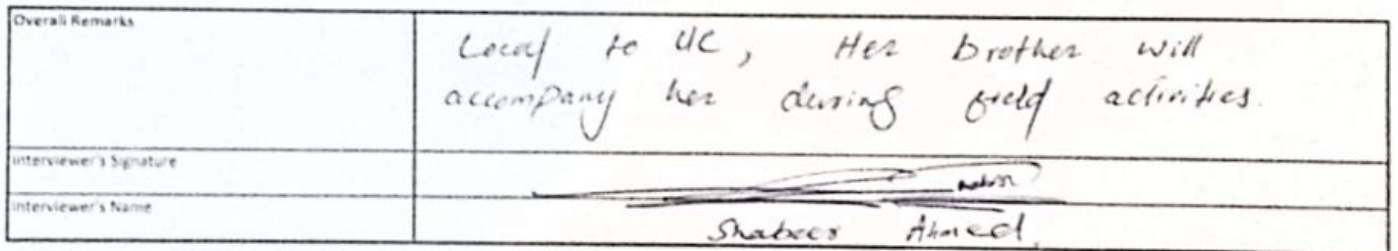 Overall Remarks
Local to UC, Her brother will
accompany her during field activities.
Interviewer's Signature
Interviewer's Name
Shabeer Ahmed